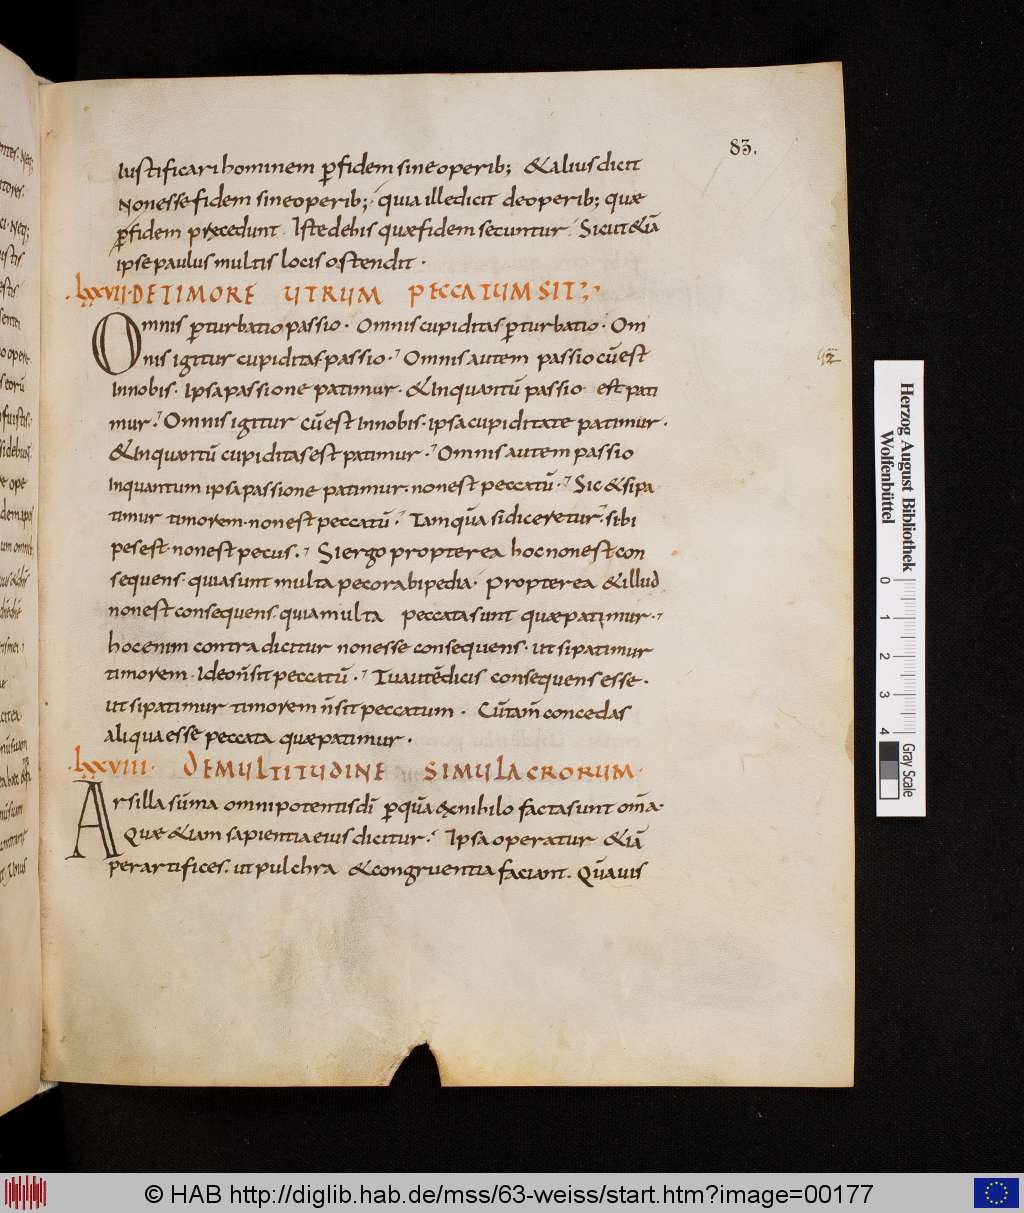 83.
Iustificari hominem ꝑfidem sine operib; & alius dicit
Non esse fidem sine operib; quia ille dicit de operib; quæ
ꝑfidem p̄ęcedunt. Iste de his quæ fidem secuntur. Sicut & iā
ipse paulus multis locis ostendit.
.lxxvii. DE TIMORE UTRUM PECCATUM SIT;
Omnis ꝑturbatio passio. Omnis cupiditas ꝑturbatio. Om
nis igitur cupiditas passio. Omnis autem passio cū est
In nobis. ipsa passione patimur. & Inquantū passio est pati
mur. Omnis igitur cū est In nobis. ipsa cupiditate patimur.
& Inquantū cupiditas est patimur. Omnis autem passio
Inquantum ipsa passione patimur. non est peccatū. Sic & si pa
timur timorem. non est peccatū. Tamquā si diceretur. si bi
pes est. non est pecus. Si ergo propterea hoc non est con
sequens. quia sunt multa pecora bipedia. propterea & illud
non est consequens. quia multa peccata sunt quæ patimur.
hoc enim contra dicitur non esse consequens. ut si patimur
timorem. Ideo n̄ sit peccatū. Tu autē dicis consequens esse.
ut si patimur timorem n̄ sit peccatum. Cū tam̄ concedas
aliqua esse peccata quæ patimur.
.lxxviii. DE MULTITUDINE SIMULACRORUM.
Ars illa sūma omnipotentis dī ꝑ quā ex nihilo facta sunt om̄a.
Quæ & iam sapientia eius dicitur. Ipsa operatur & iā
per artifices. ut pulchra & congruentia faciant. Quāuis
Herzog August Bibliothek
Wolfenbüttel
0 1 2 3 4
Gray Scale
© HAB http://diglib.hab.de/mss/63-weiss/start.htm?image=00177